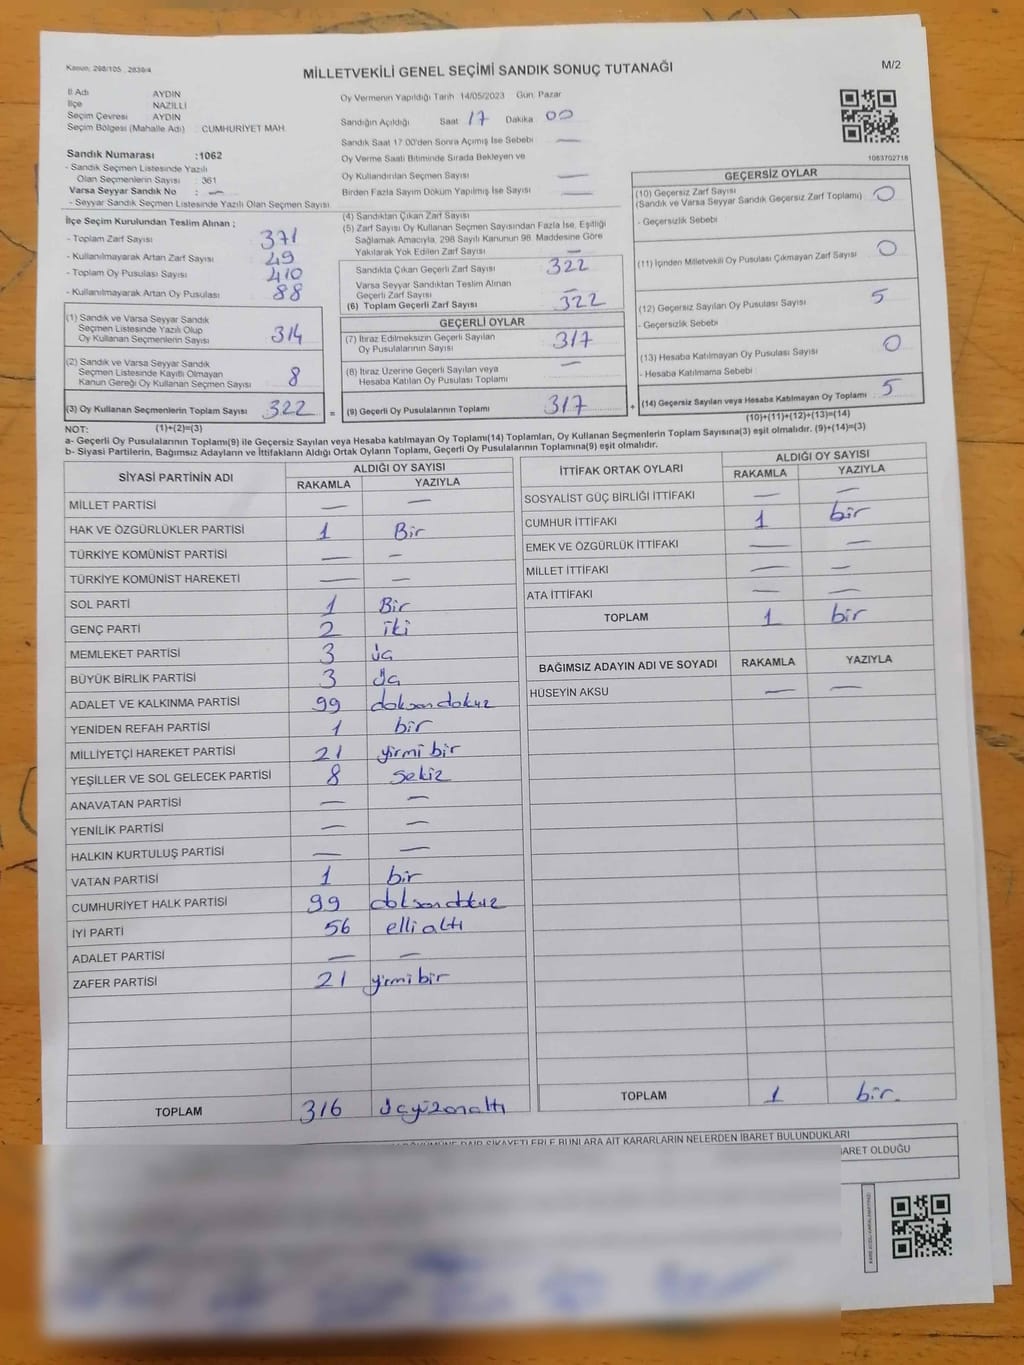 Kanun: 298/105 , 2839/4
MİLLETVEKİLİ GENEL SEÇİMİ SANDIK SONUÇ TUTANAĞI
M/2
İl Adı AYDIN
İlçe NAZİLLİ
Seçim Çevresi AYDIN
Seçim Bölgesi (Mahalle Adı) : CUMHURİYET MAH.
Sandık Numarası :1062
- Sandık Seçmen Listesinde Yazılı
Olan Seçmenlerin Sayısı : 361
Varsa Seyyar Sandık No : —
- Seyyar Sandık Seçmen Listesinde Yazılı Olan Seçmen Sayısı
Oy Vermenin Yapıldığı Tarih 14/05/2023 Gün: Pazar
Sandığın Açıldığı Saat 17 Dakika 00
Sandık Saat 17.00'den Sonra Açımış İse Sebebi —
Oy Verme Saati Bitiminde Sırada Bekleyen ve
Oy Kullandırılan Seçmen Sayısı —
Birden Fazla Sayım Döküm Yapılmış İse Sayısı —
1083702718
İlçe Seçim Kurulundan Teslim Alınan ;
- Toplam Zarf Sayısı 371
- Kullanılmayarak Artan Zarf Sayısı 49
- Toplam Oy Pusulası Sayısı 410
- Kullanılmayarak Artan Oy Pusulası 88
(1) Sandık ve Varsa Seyyar Sandık
Seçmen Listesinde Yazılı Olup
Oy Kullanan Seçmenlerin Sayısı 314
(2) Sandık ve Varsa Seyyar Sandık
Seçmen Listesinde Kayıtlı Olmayan
Kanun Gereği Oy Kullanan Seçmen Sayısı 8
(3) Oy Kullanan Seçmenlerin Toplam Sayısı 322 =
(4) Sandıktan Çıkan Zarf Sayısı
(5) Zarf Sayısı Oy Kullanan Seçmen Sayısından Fazla İse, Eşitliği
Sağlamak Amacıyla, 298 Sayılı Kanunun 98. Maddesine Göre
Yakılarak Yok Edilen Zarf Sayısı —
Sandıkta Çıkan Geçerli Zarf Sayısı 322
Varsa Seyyar Sandıktan Teslim Alınan
Geçerli Zarf Sayısı —
(6) Toplam Geçerli Zarf Sayısı 322
GEÇERLİ OYLAR
(7) İtiraz Edilmeksizin Geçerli Sayılan
Oy Pusulalarının Sayısı 317
(8) İtiraz Üzerine Geçerli Sayılan veya
Hesaba Katılan Oy Pusulası Toplamı —
(9) Geçerli Oy Pusulalarının Toplamı 317 +
GEÇERSİZ OYLAR
(10) Geçersiz Zarf Sayısı
(Sandık ve Varsa Seyyar Sandık Geçersiz Zarf Toplamı) 0
- Geçersizlik Sebebi
(11) İçinden Milletvekili Oy Pusulası Çıkmayan Zarf Sayısı 0
(12) Geçersiz Sayılan Oy Pusulası Sayısı 5
- Geçersizlik Sebebi
(13) Hesaba Katılmayan Oy Pusulası Sayısı 0
- Hesaba Katılmama Sebebi
(14) Geçersiz Sayılan veya Hesaba Katılmayan Oy Toplamı 5
NOT: (1)+(2)=(3)
(10)+(11)+(12)+(13)=(14)
a- Geçerli Oy Pusulalarının Toplamı(9) ile Geçersiz Sayılan veya Hesaba katılmayan Oy Toplamı(14) Toplamları, Oy Kullanan Seçmenlerin Toplam Sayısına(3) eşit olmalıdır. (9)+(14)=(3)
b- Siyasi Partilerin, Bağımsız Adayların ve İttifakların Aldığı Ortak Oyların Toplamı, Geçerli Oy Pusulalarının Toplamına(9) eşit olmalıdır.
SİYASİ PARTİNİN ADI ALDIĞI OY SAYISI
RAKAMLA YAZIYLA
MİLLET PARTİSİ — —
HAK VE ÖZGÜRLÜKLER PARTİSİ 1 Bir
TÜRKİYE KOMÜNİST PARTİSİ — —
TÜRKİYE KOMÜNİST HAREKETİ — —
SOL PARTİ 1 Bir
GENÇ PARTİ 2 iki
MEMLEKET PARTİSİ 3 üç
BÜYÜK BİRLİK PARTİSİ 3 üç
ADALET VE KALKINMA PARTİSİ 99 doksandokuz
YENİDEN REFAH PARTİSİ 1 bir
MİLLİYETÇİ HAREKET PARTİSİ 21 yirmi bir
YEŞİLLER VE SOL GELECEK PARTİSİ 8 sekiz
ANAVATAN PARTİSİ — —
YENİLİK PARTİSİ — —
HALKIN KURTULUŞ PARTİSİ — —
VATAN PARTİSİ 1 bir
CUMHURİYET HALK PARTİSİ 99 doksandokuz
İYİ PARTİ 56 elli altı
ADALET PARTİSİ — —
ZAFER PARTİSİ 21 yirmi bir
TOPLAM 316 üçyüzonaltı
İTTİFAK ORTAK OYLARI ALDIĞI OY SAYISI
RAKAMLA YAZIYLA
SOSYALİST GÜÇ BİRLİĞİ İTTİFAKI — —
CUMHUR İTTİFAKI 1 bir
EMEK VE ÖZGÜRLÜK İTTİFAKI — —
MİLLET İTTİFAKI — —
ATA İTTİFAKI — —
TOPLAM 1 bir
BAĞIMSIZ ADAYIN ADI VE SOYADI RAKAMLA YAZIYLA
HÜSEYİN AKSU — —
TOPLAM 1 bir.
DÖKÜMÜNE DAİR ŞİKAYETLERLE BUNLARA AİT KARARLARIN NELERDEN İBARET BULUNDUKLARI
BARET OLDUĞU